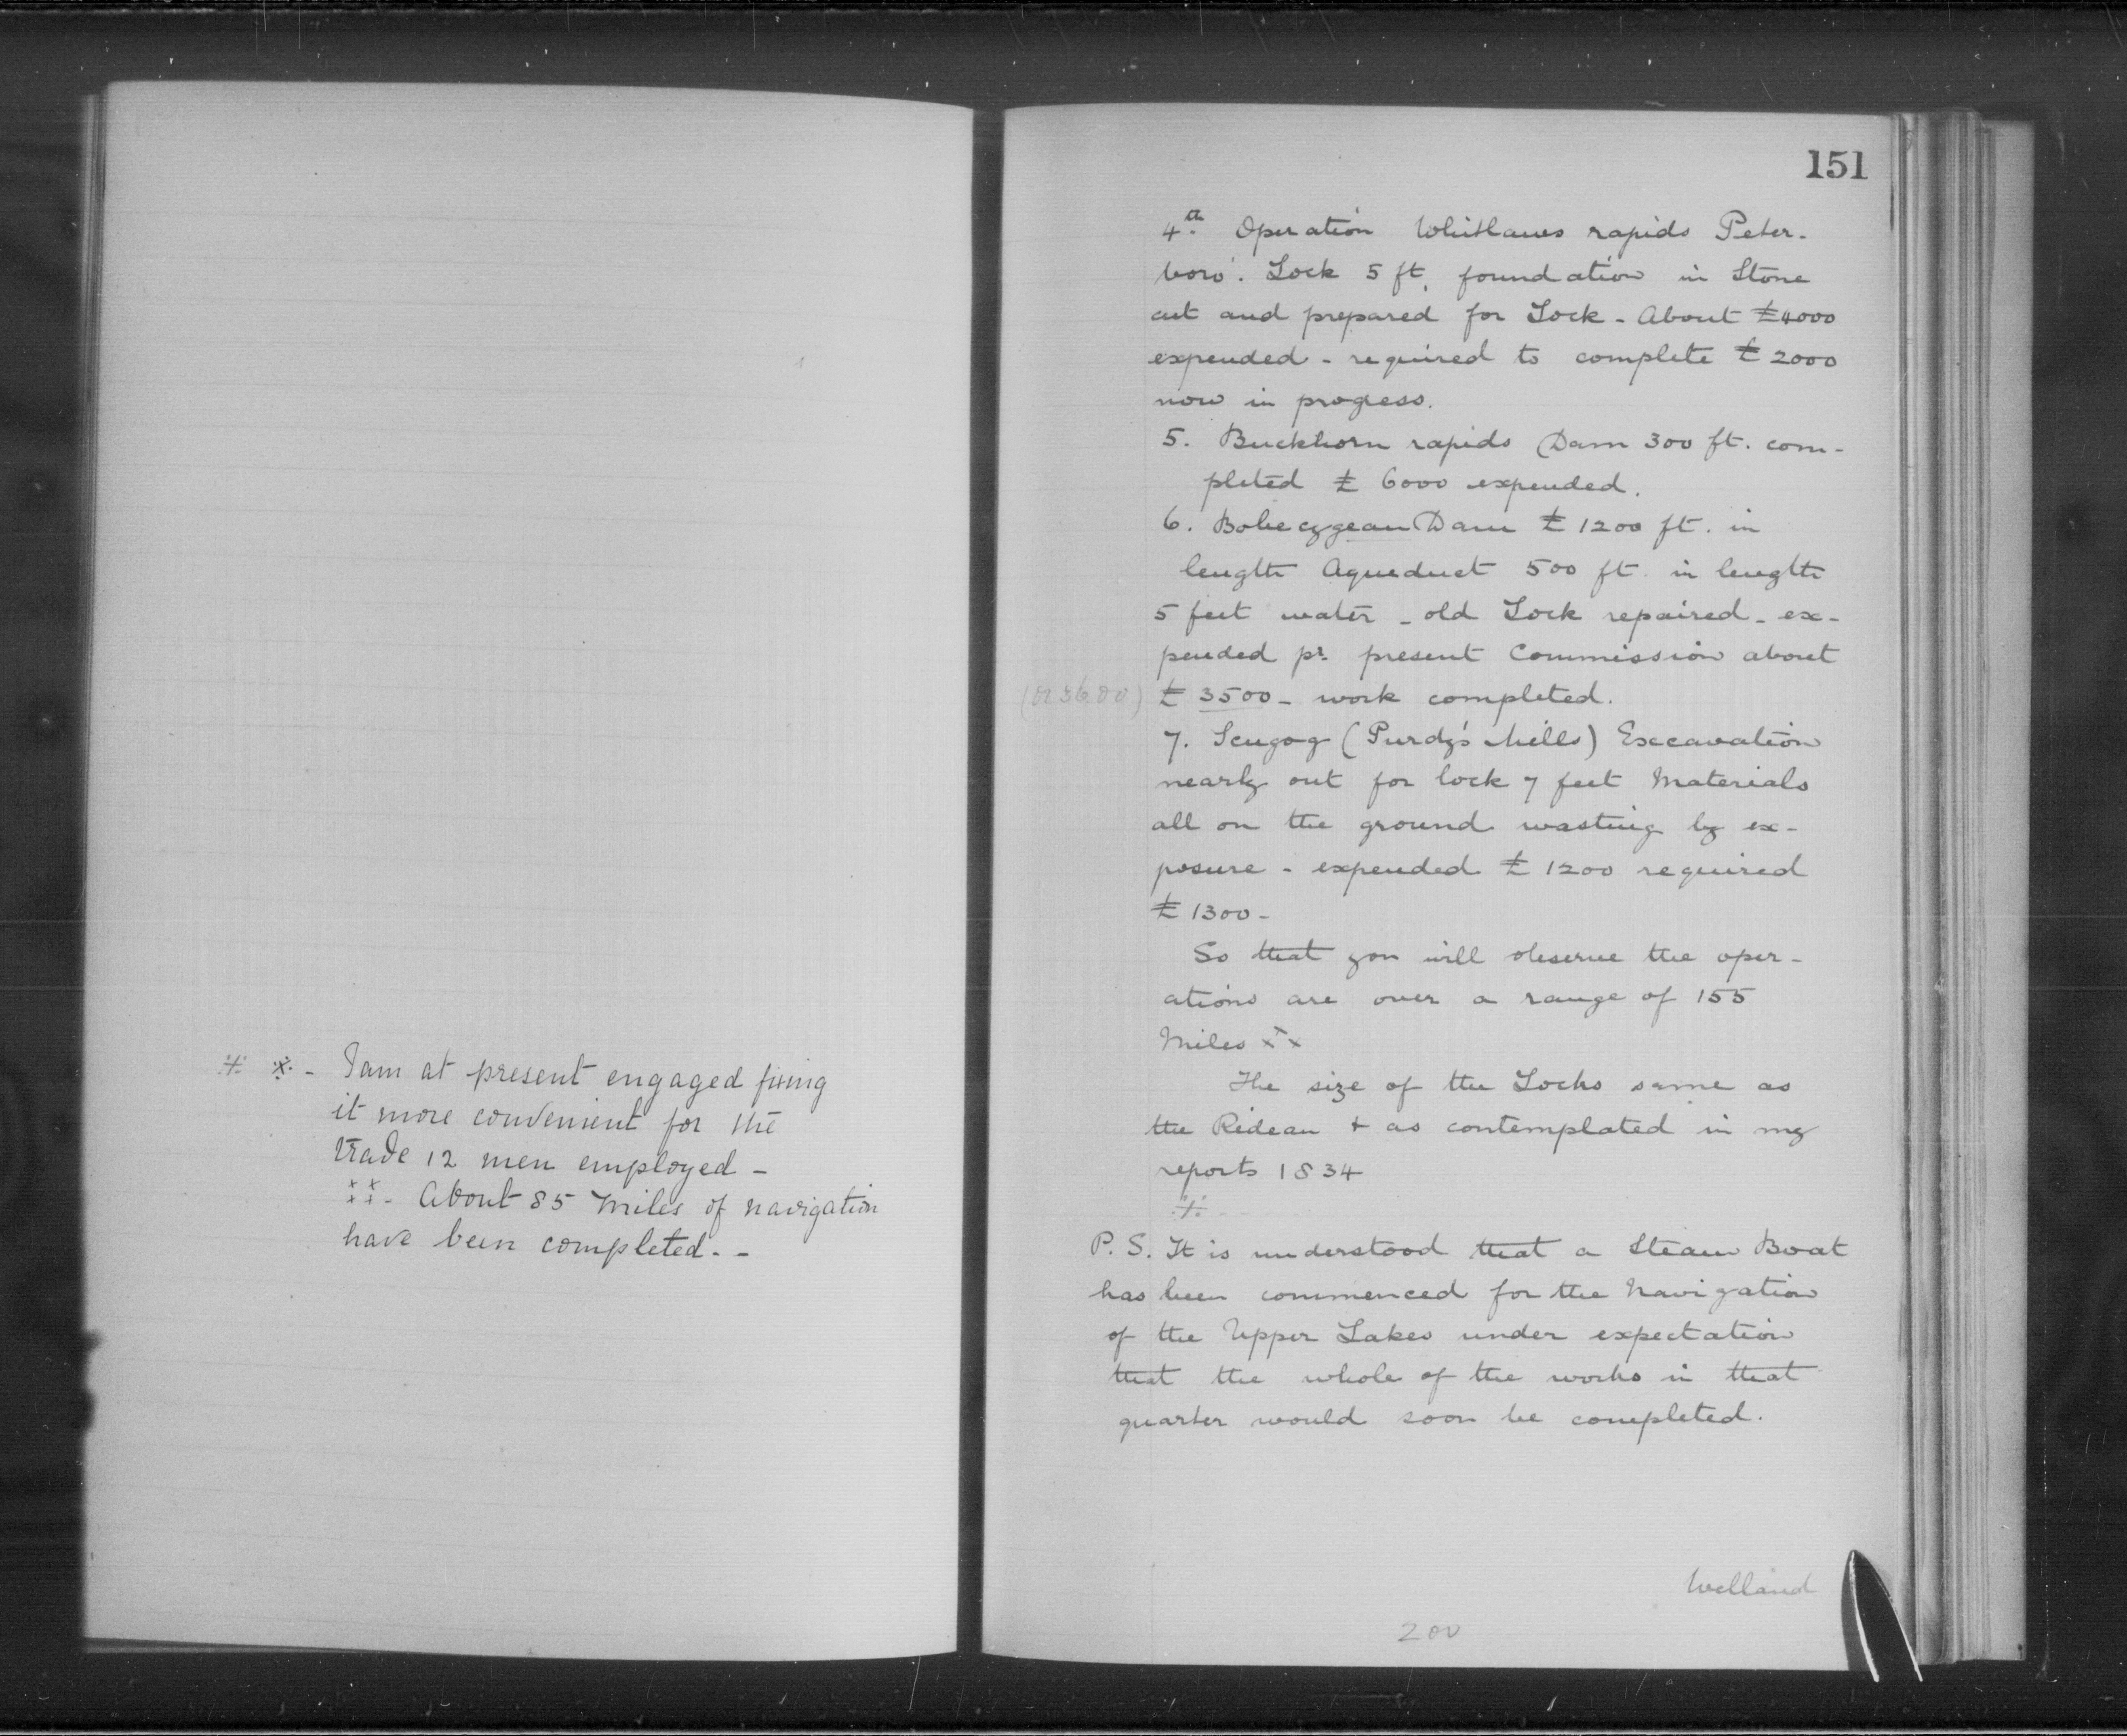 ※ ※ - I am at present engaged fixing
it more convenient for the
trade 12 men employed -
×× - About 85 Miles of navigation
have been completed. -
151
4th. Operation Whitlaws rapids Peter-
boro'. Lock 5 ft. foundation in Stone
cut and prepared for Lock - About £4000
expended - required to complete £2000
now in progress.
5. Buckhorn rapids Dam 300 ft. com-
pleted £ 6000 expended.
6. Bobecygean Dam £ 1200 ft. in
length Aqueduct 500 ft. in length
5 feet water - old Lock repaired - ex-
pended pr. present Commission about
(or 3600) £ 3500 - work completed.
7. Scugog (Purdy's Mills) Excavation
nearly out for lock 7 feet Materials
all on the ground wasting by ex-
posure - expended £ 1200 required
£ 1300 -
So that you will observe the oper-
ations are over a range of 155
Miles ××
The size of the Locks same as
the Rideau + as contemplated in my
reports 1834
※
P.S. It is understood that a Steam Boat
has been commenced for the Navigation
of the Upper Lakes under expectation
that the whole of the works in that
quarter would soon be completed.
Welland
200